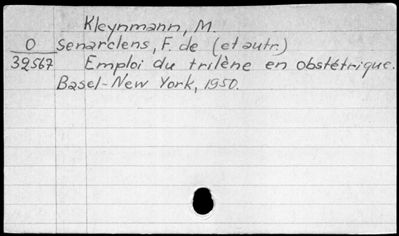 Kleynmann, M.
O Senarclens, F. de (et autr.)
39567 Emploi du trilène en obstétrique.
Basel-New York, 1950.